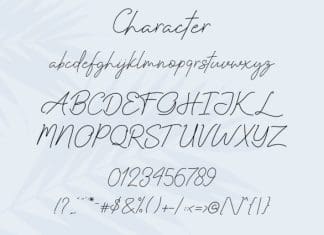 Character
abcdefghijklmnopqrstuvwxyz
ABCDEFGHIJKL
MNOPQRSTUVWXYZ
0123456789
!?_"*#$&%()+-/:;<=>@[\]^{|}